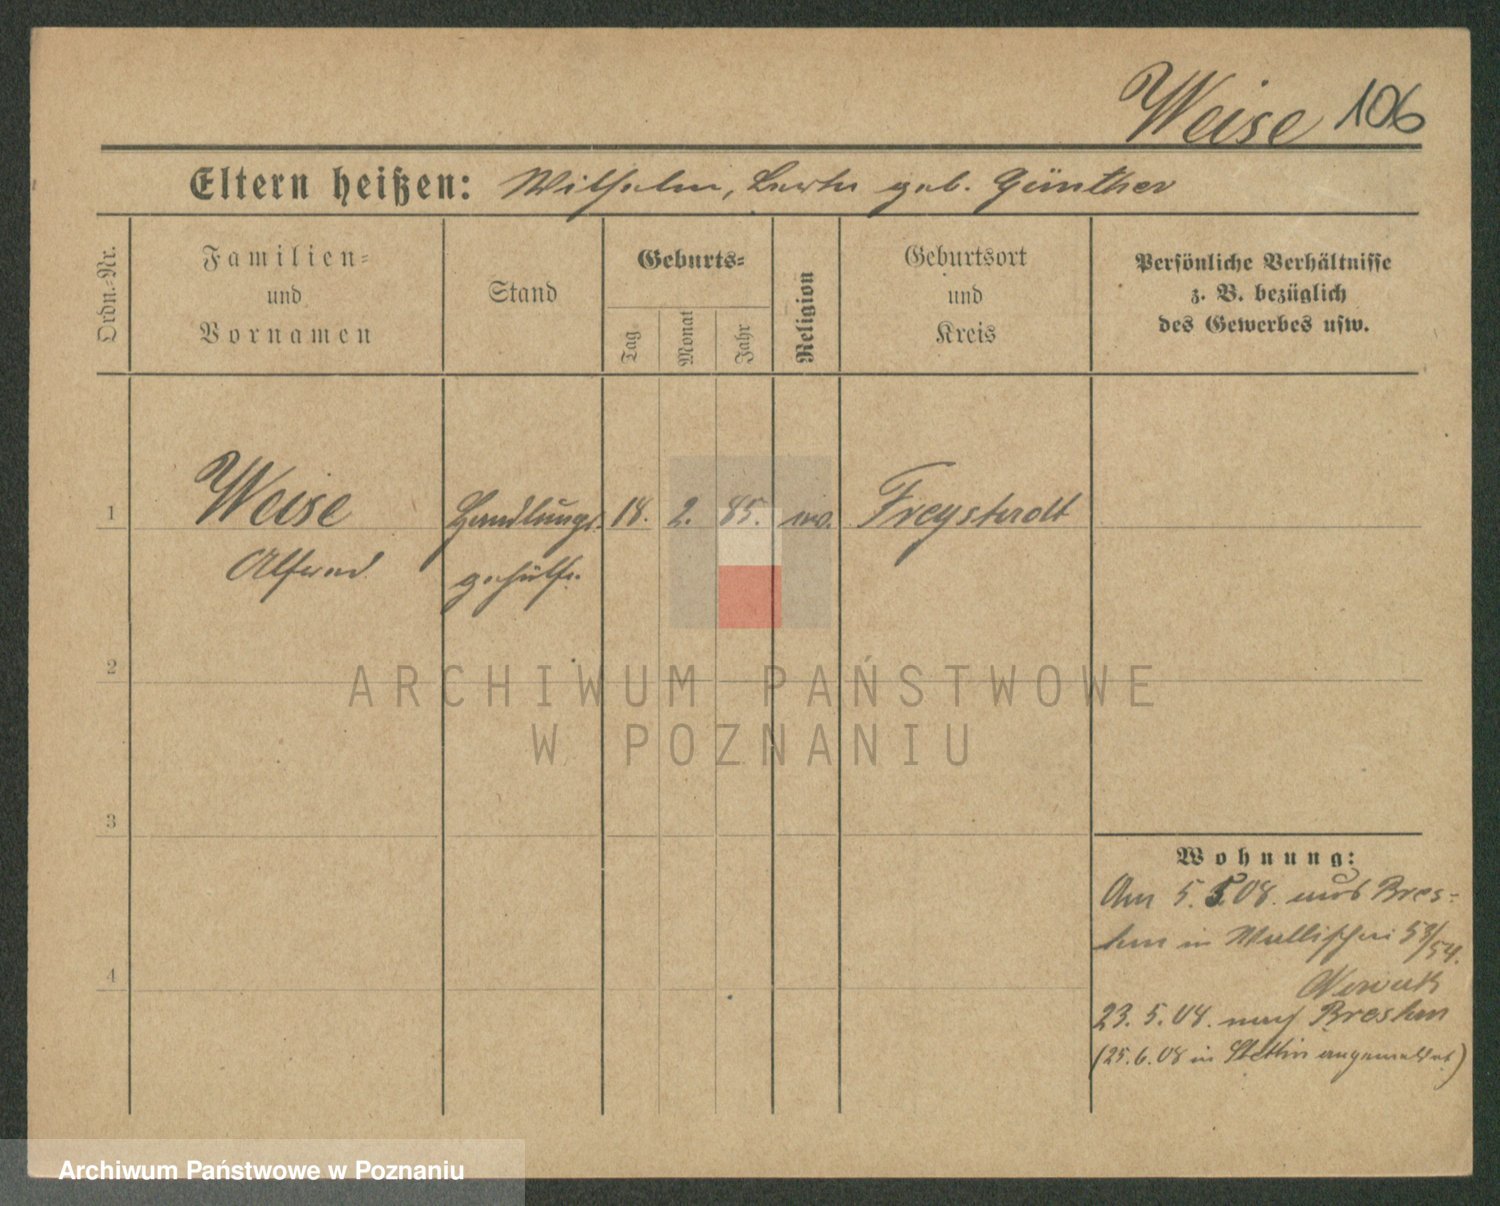 Weise 106
Eltern heißen: Wilhelm, Berta geb. Günther
Ordn.-Nr.
Familien-
und
Vornamen
Stand
Geburts-
Tag
Monat
Jahr
Religion
Geburtsort
und
Kreis
Persönliche Verhältnisse
z. B. bezüglich
des Gewerbes usw.
1
Weise
Handlungs
18.
2.
85.
ev.
Freystadt
Alfred
gehülfe.
2
ARCHIWUM PAŃSTWOWE
W POZNANIU
3
Wohnung:
Am 5. 5. 08. aus Bres-
lau in Wallischei 53/54.
4
23. 5. 08. nach Breslau
(25. 6. 08 in Stettin angemeldet)
Archiwum Państwowe w Poznaniu